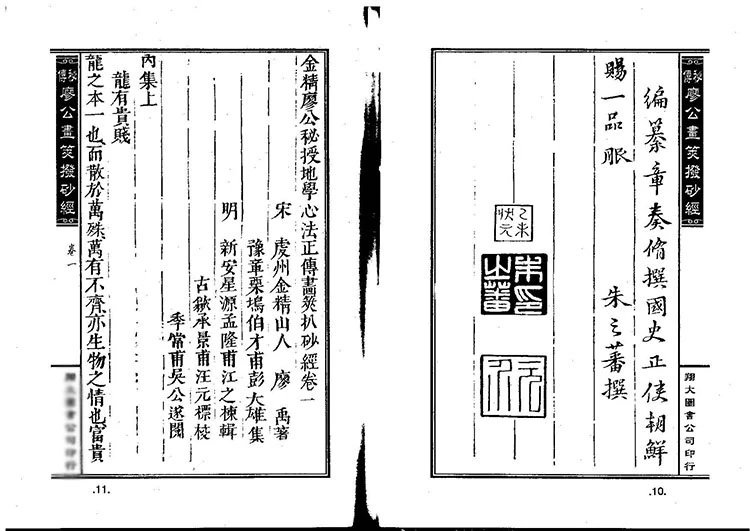 秘傳廖公畫筴撥砂經
翔大圖書公司印行
編纂章奏脩撰國史正使朝鮮
賜一品服
朱之蕃撰
乙未狀元
朱印之蕃
.10.
金精廖公秘授地學心法正傳畫筴扒砂經卷一
宋 虔州金精山人 廖 禹著
豫章栗塢伯才甫彭大雄集
明 新安星源孟隆甫江之棟輯
古歙承景甫汪元標校
季當甫吳公遂閱
內集上
龍有貴賤
龍之本一也而散於萬殊萬有不齊亦生物之情也富貴
秘傳廖公畫筴撥砂經
卷一
翔大圖書公司印行
.11.